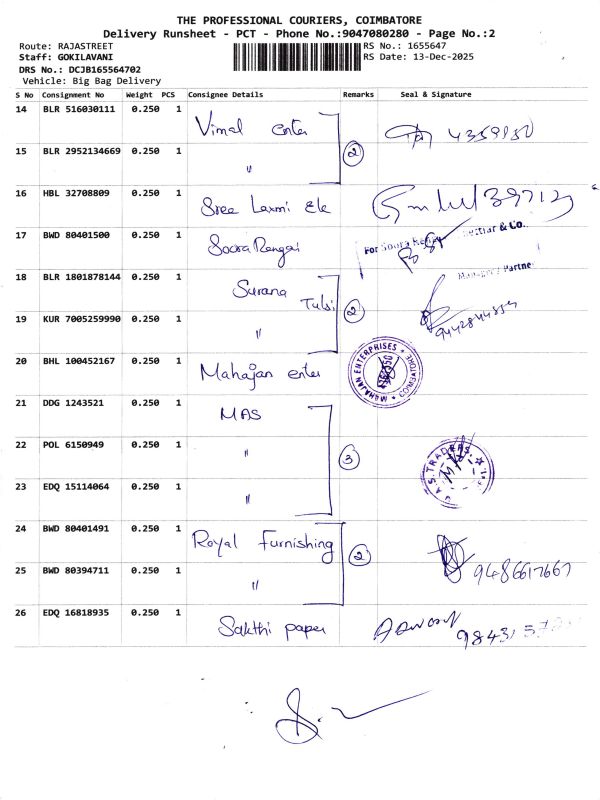 THE PROFESSIONAL COURIERS, COIMBATORE
Delivery Runsheet - PCT - Phone No.:9047080280 - Page No.:2
Route: RAJASTREET
RS No.: 1655647
Staff: GOKILAVANI
RS Date: 13-Dec-2025
DRS No.: DCJB165564702
Vehicle: Big Bag Delivery
S No Consignment No Weight PCS Consignee Details Remarks Seal & Signature
14 BLR 516030111 0.250 1 Vimal enter
15 BLR 2952134669 0.250 1 " 2
16 HBL 32708809 0.250 1 Sree Laxmi Ele
17 BWD 80401500 0.250 1 Soora Rengai For Soora & Co..
Partner
18 BLR 1801878144 0.250 1 Surana Tulsi 2
19 KUR 7005259990 0.250 1 "
20 BHL 100452167 0.250 1 Mahajan enter MAHAJAN ENTERPRISES * COIMBATORE *
21 DDG 1243521 0.250 1 MAS
22 POL 6150949 0.250 1 " 3 TRADERS
23 EDQ 15114064 0.250 1 "
24 BWD 80401491 0.250 1 Royal Furnishing 2
25 BWD 80394711 0.250 1 " 9486617667
26 EDQ 16818935 0.250 1 Sakthi paper